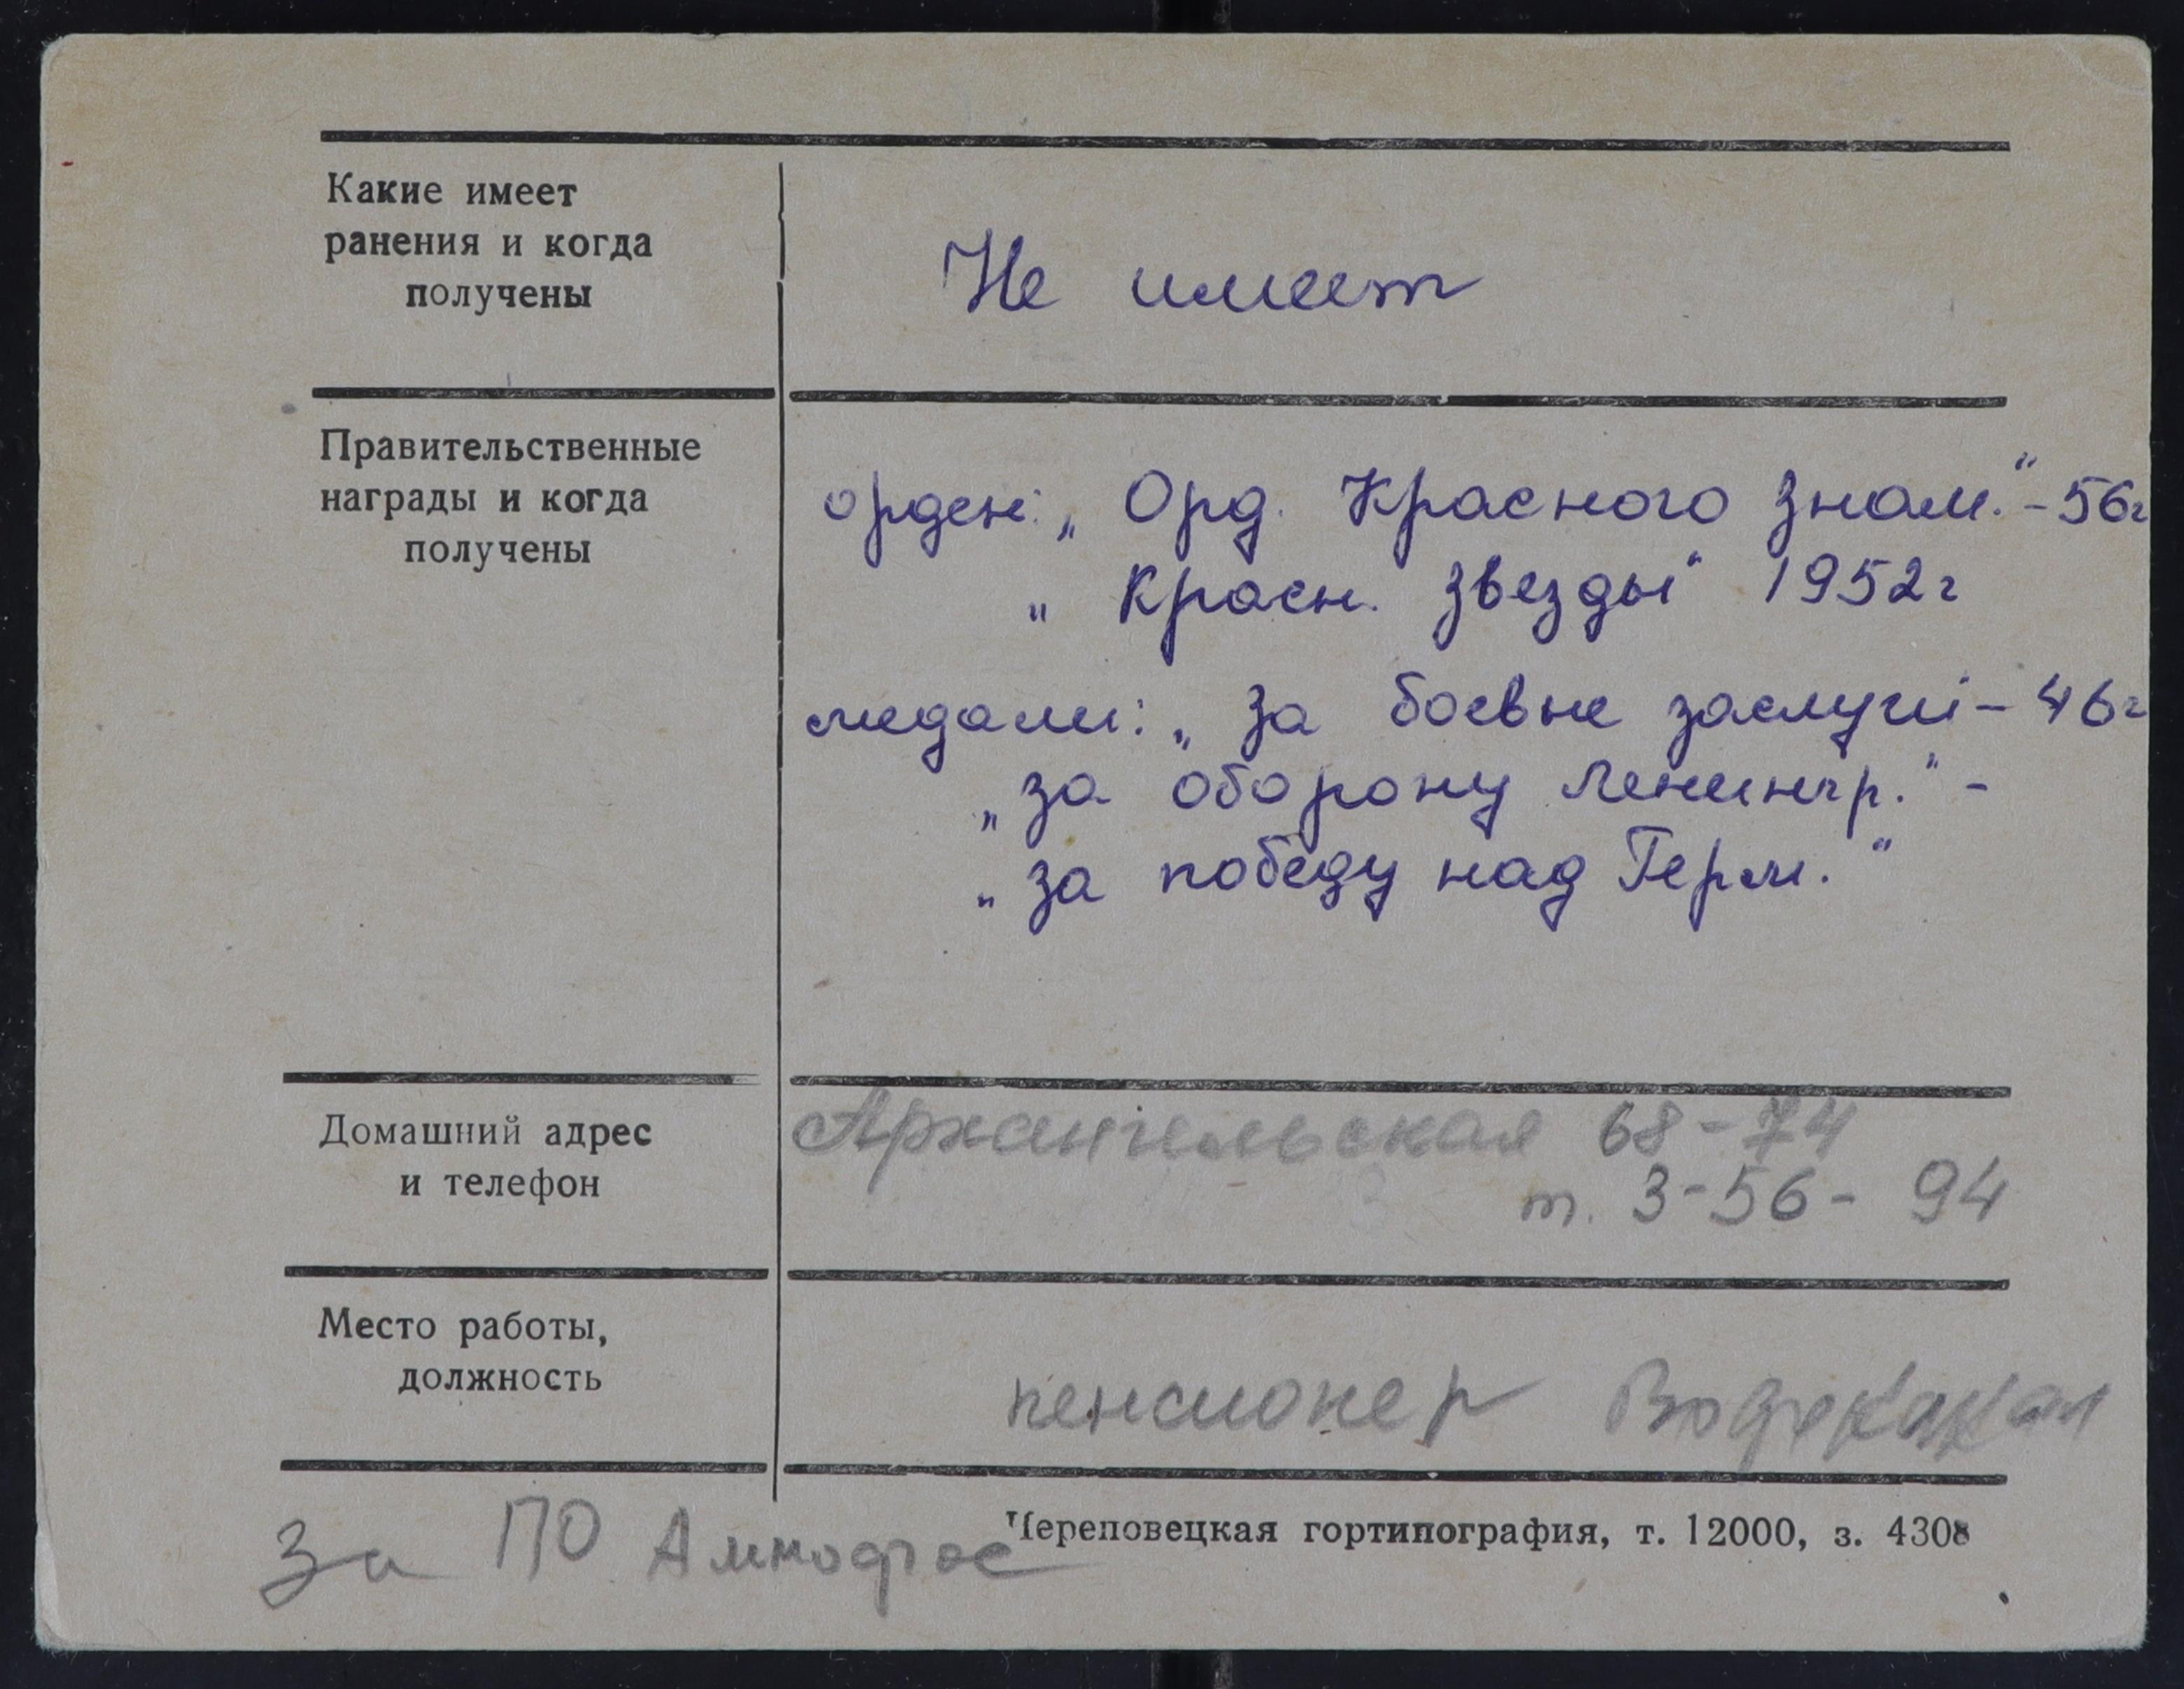 Какие имеет
ранения и когда
получены
Не имеет
Правительственные
награды и когда
получены
орден: „ Орд. Красного Знам." - 56г
„ Красн. Звезды" 1952г
медали: „ За боевые заслуги - 46г
„ за оборону Ленингр." -
„ за победу над Герм. "
Домашний адрес
и телефон
Архангельская 68-74
т. 3-56-94
Место работы,
должность
пенсионер
За ПО Аммофос
Череповецкая гортипография, т. 12000, з. 4308